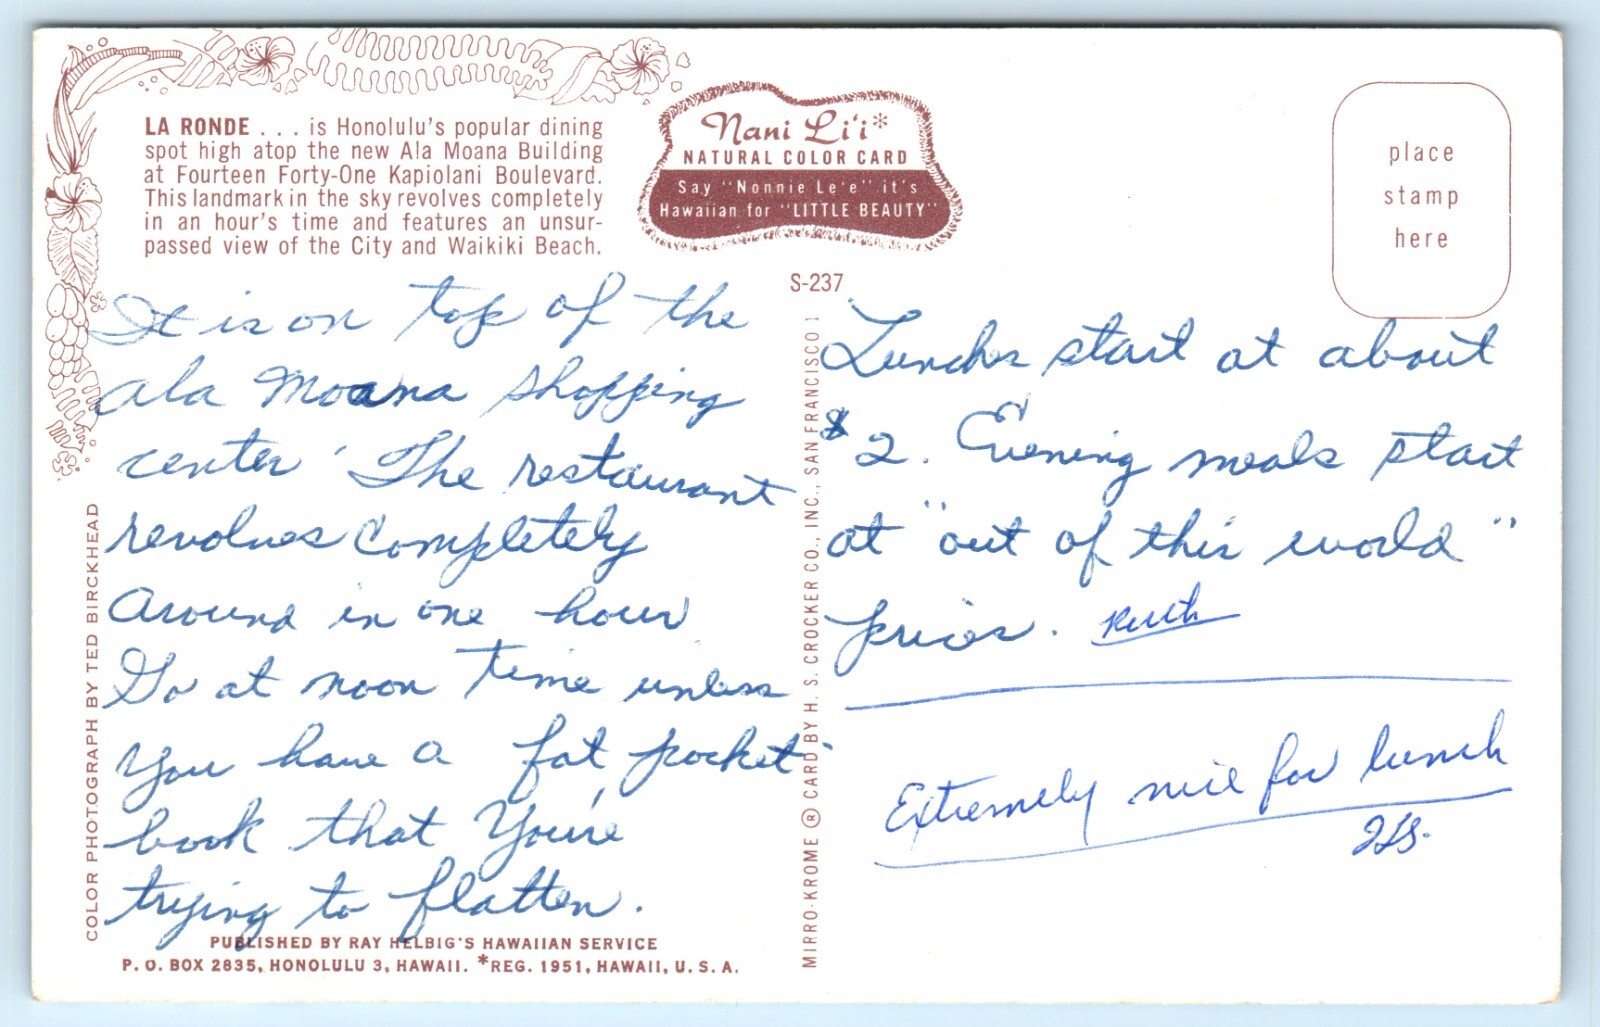 LA RONDE . . . is Honolulu's popular dining
spot high atop the new Ala Moana Building
at Fourteen Forty-One Kapiolani Boulevard.
This landmark in the sky revolves completely
in an hour's time and features an unsur-
passed view of the City and Waikiki Beach.
Nani Li'i*
NATURAL COLOR CARD
Say "Nonnie Le'e" it's
Hawaiian for "LITTLE BEAUTY"
place
stamp
here
S-237
It is on top of the
ala Moana shopping
center The restaurant
revolves completely
around in one hour
Go at noon time unless
you have a fat pocket-
book that you're
trying to flatten.
Lunches start at about
$2. Evening meals start
at "out of this world"
prices. Ruth
Extremely nice for lunch
COLOR PHOTOGRAPH BY TED BIRCKHEAD
MIRRO-KROME ® CARD BY H. S. CROCKER CO., INC., SAN FRANCISCO 1
PUBLISHED BY RAY HELBIG'S HAWAIIAN SERVICE
P. O. BOX 2835, HONOLULU 3, HAWAII. *REG. 1951, HAWAII, U. S. A.